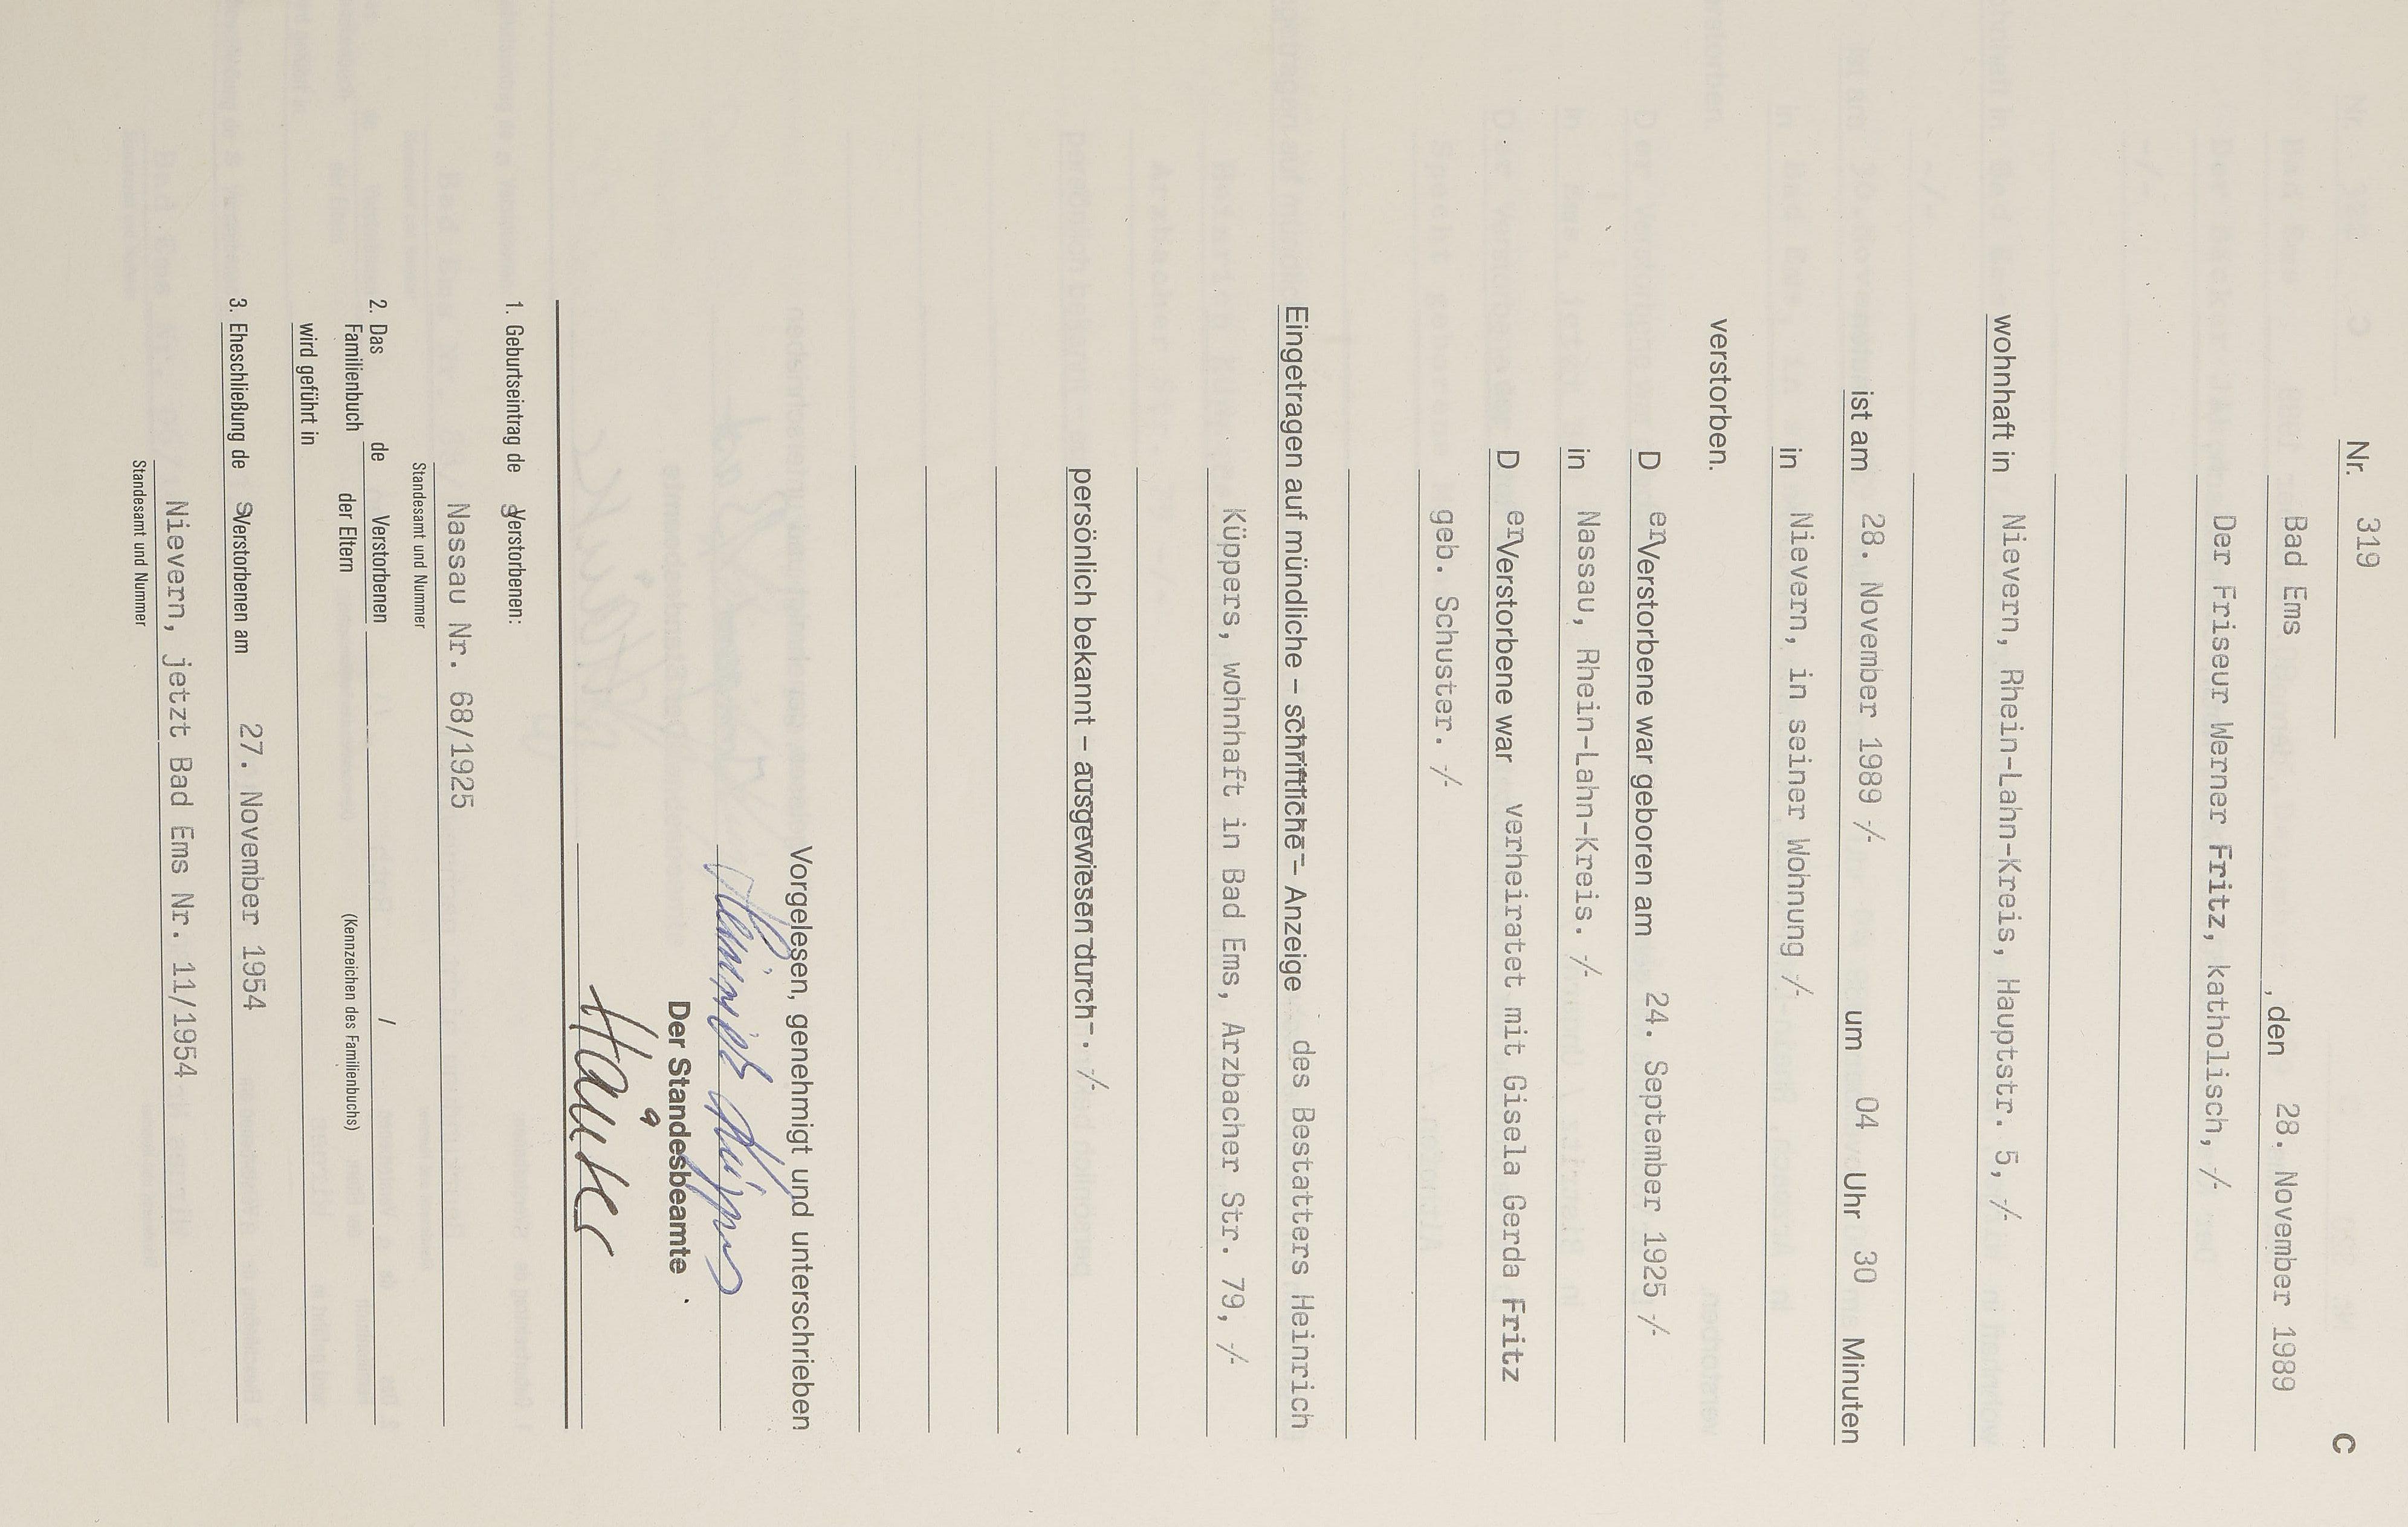 C
Nr. 319
Bad Ems , den 28. November 1989
Der Friseur Werner Fritz, katholisch, -/-
wohnhaft in Nievern, Rhein-Lahn-Kreis, Hauptstr. 5, -/-
ist am 28. November 1989 -/- um 04 Uhr 30 Minuten
in Nievern, in seiner Wohnung -/-
verstorben.
D er Verstorbene war geboren am 24. September 1925 -/-
in Nassau, Rhein-Lahn-Kreis. -/-
D er Verstorbene war verheiratet mit Gisela Gerda Fritz
geb. Schuster. -/-
Eingetragen auf mündliche – schriftliche – Anzeige des Bestatters Heinrich
Küppers, wohnhaft in Bad Ems, Arzbacher Str. 79, -/-
persönlich bekannt – ausgewiesen durch-. -/-
Vorgelesen, genehmigt und unterschrieben
Heinrich Küppers
Der Standesbeamte
Hauser
1. Geburtseintrag de s Verstorbenen:
Nassau Nr. 68/1925
Standesamt und Nummer
2. Das de Verstorbenen /
Familienbuch der Eltern (Kennzeichen des Familienbuchs)
wird geführt in
3. Eheschließung de s Verstorbenen am 27. November 1954
Nievern, jetzt Bad Ems Nr. 11/1954
Standesamt und Nummer